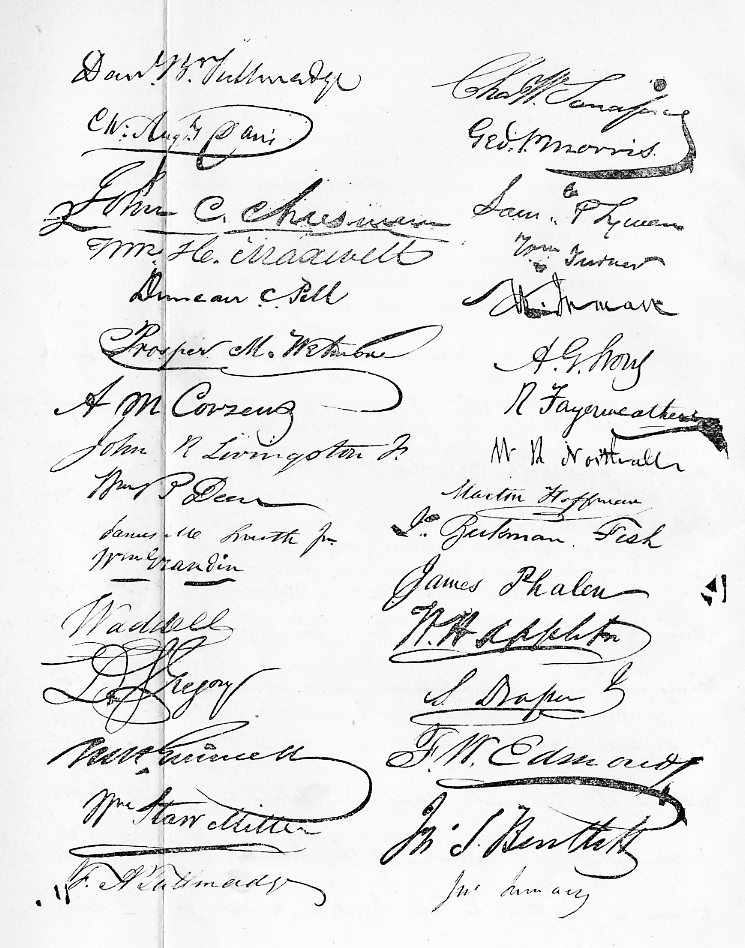 Danl. B. Tallmadge
Chs. Augs. Davis
John C. Cheesman
Wm. H. Maxwell
Duncan C. Pell
Prosper M. Wetmore
A M Cozzens
John R Livingston Jr
Wm P Deen
James M Smith Jr
Wm Grandin
Waddell
D S Gregory
Grinnell
Wm Starr Miller
F. A. Tallmadge
Chas W. Sandford
Geo. P. Morris.
Saml. P Lyman
Wm Turner
W. Inman
A. G.
R Fayerweather
Martin Hoffman
Beekman Fish
James Phalen
W. H Appleton
S. Draper Jr
F. W. Edmonds
Jn S. Bartlett
Jno Inman